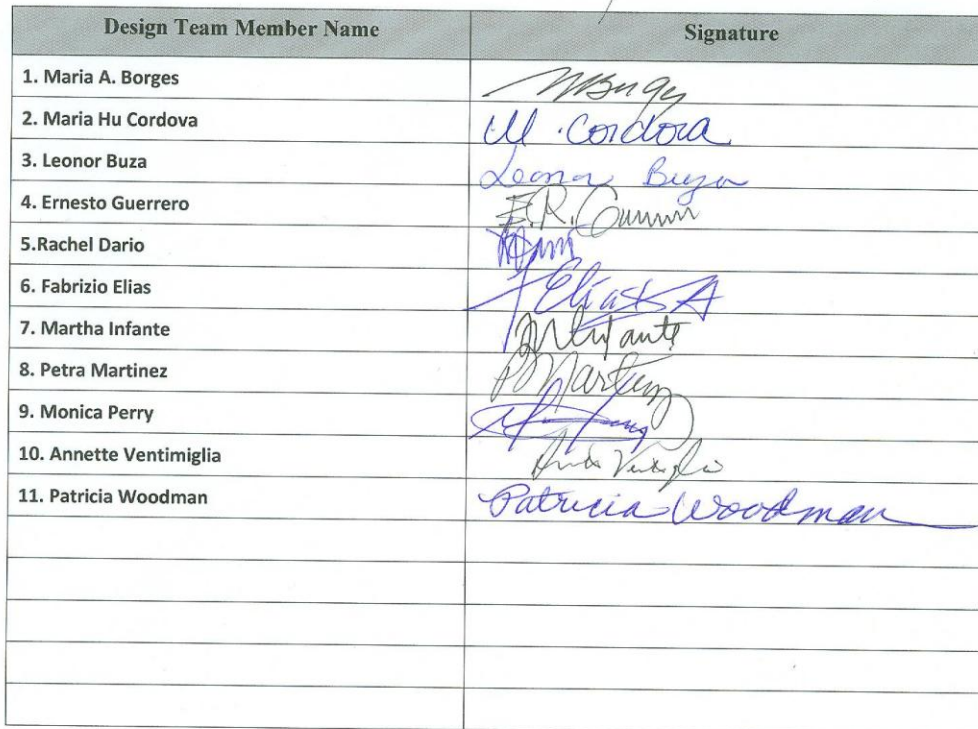 Design Team Member Name Signature
1. Maria A. Borges
2. Maria Hu Cordova M. Cordova
3. Leonor Buza Leonor Buza
4. Ernesto Guerrero E.R.
5.Rachel Dario
6. Fabrizio Elias Elias
7. Martha Infante MInfante
8. Petra Martinez PMartinez
9. Monica Perry
10. Annette Ventimiglia
11. Patricia Woodman Patricia Woodman